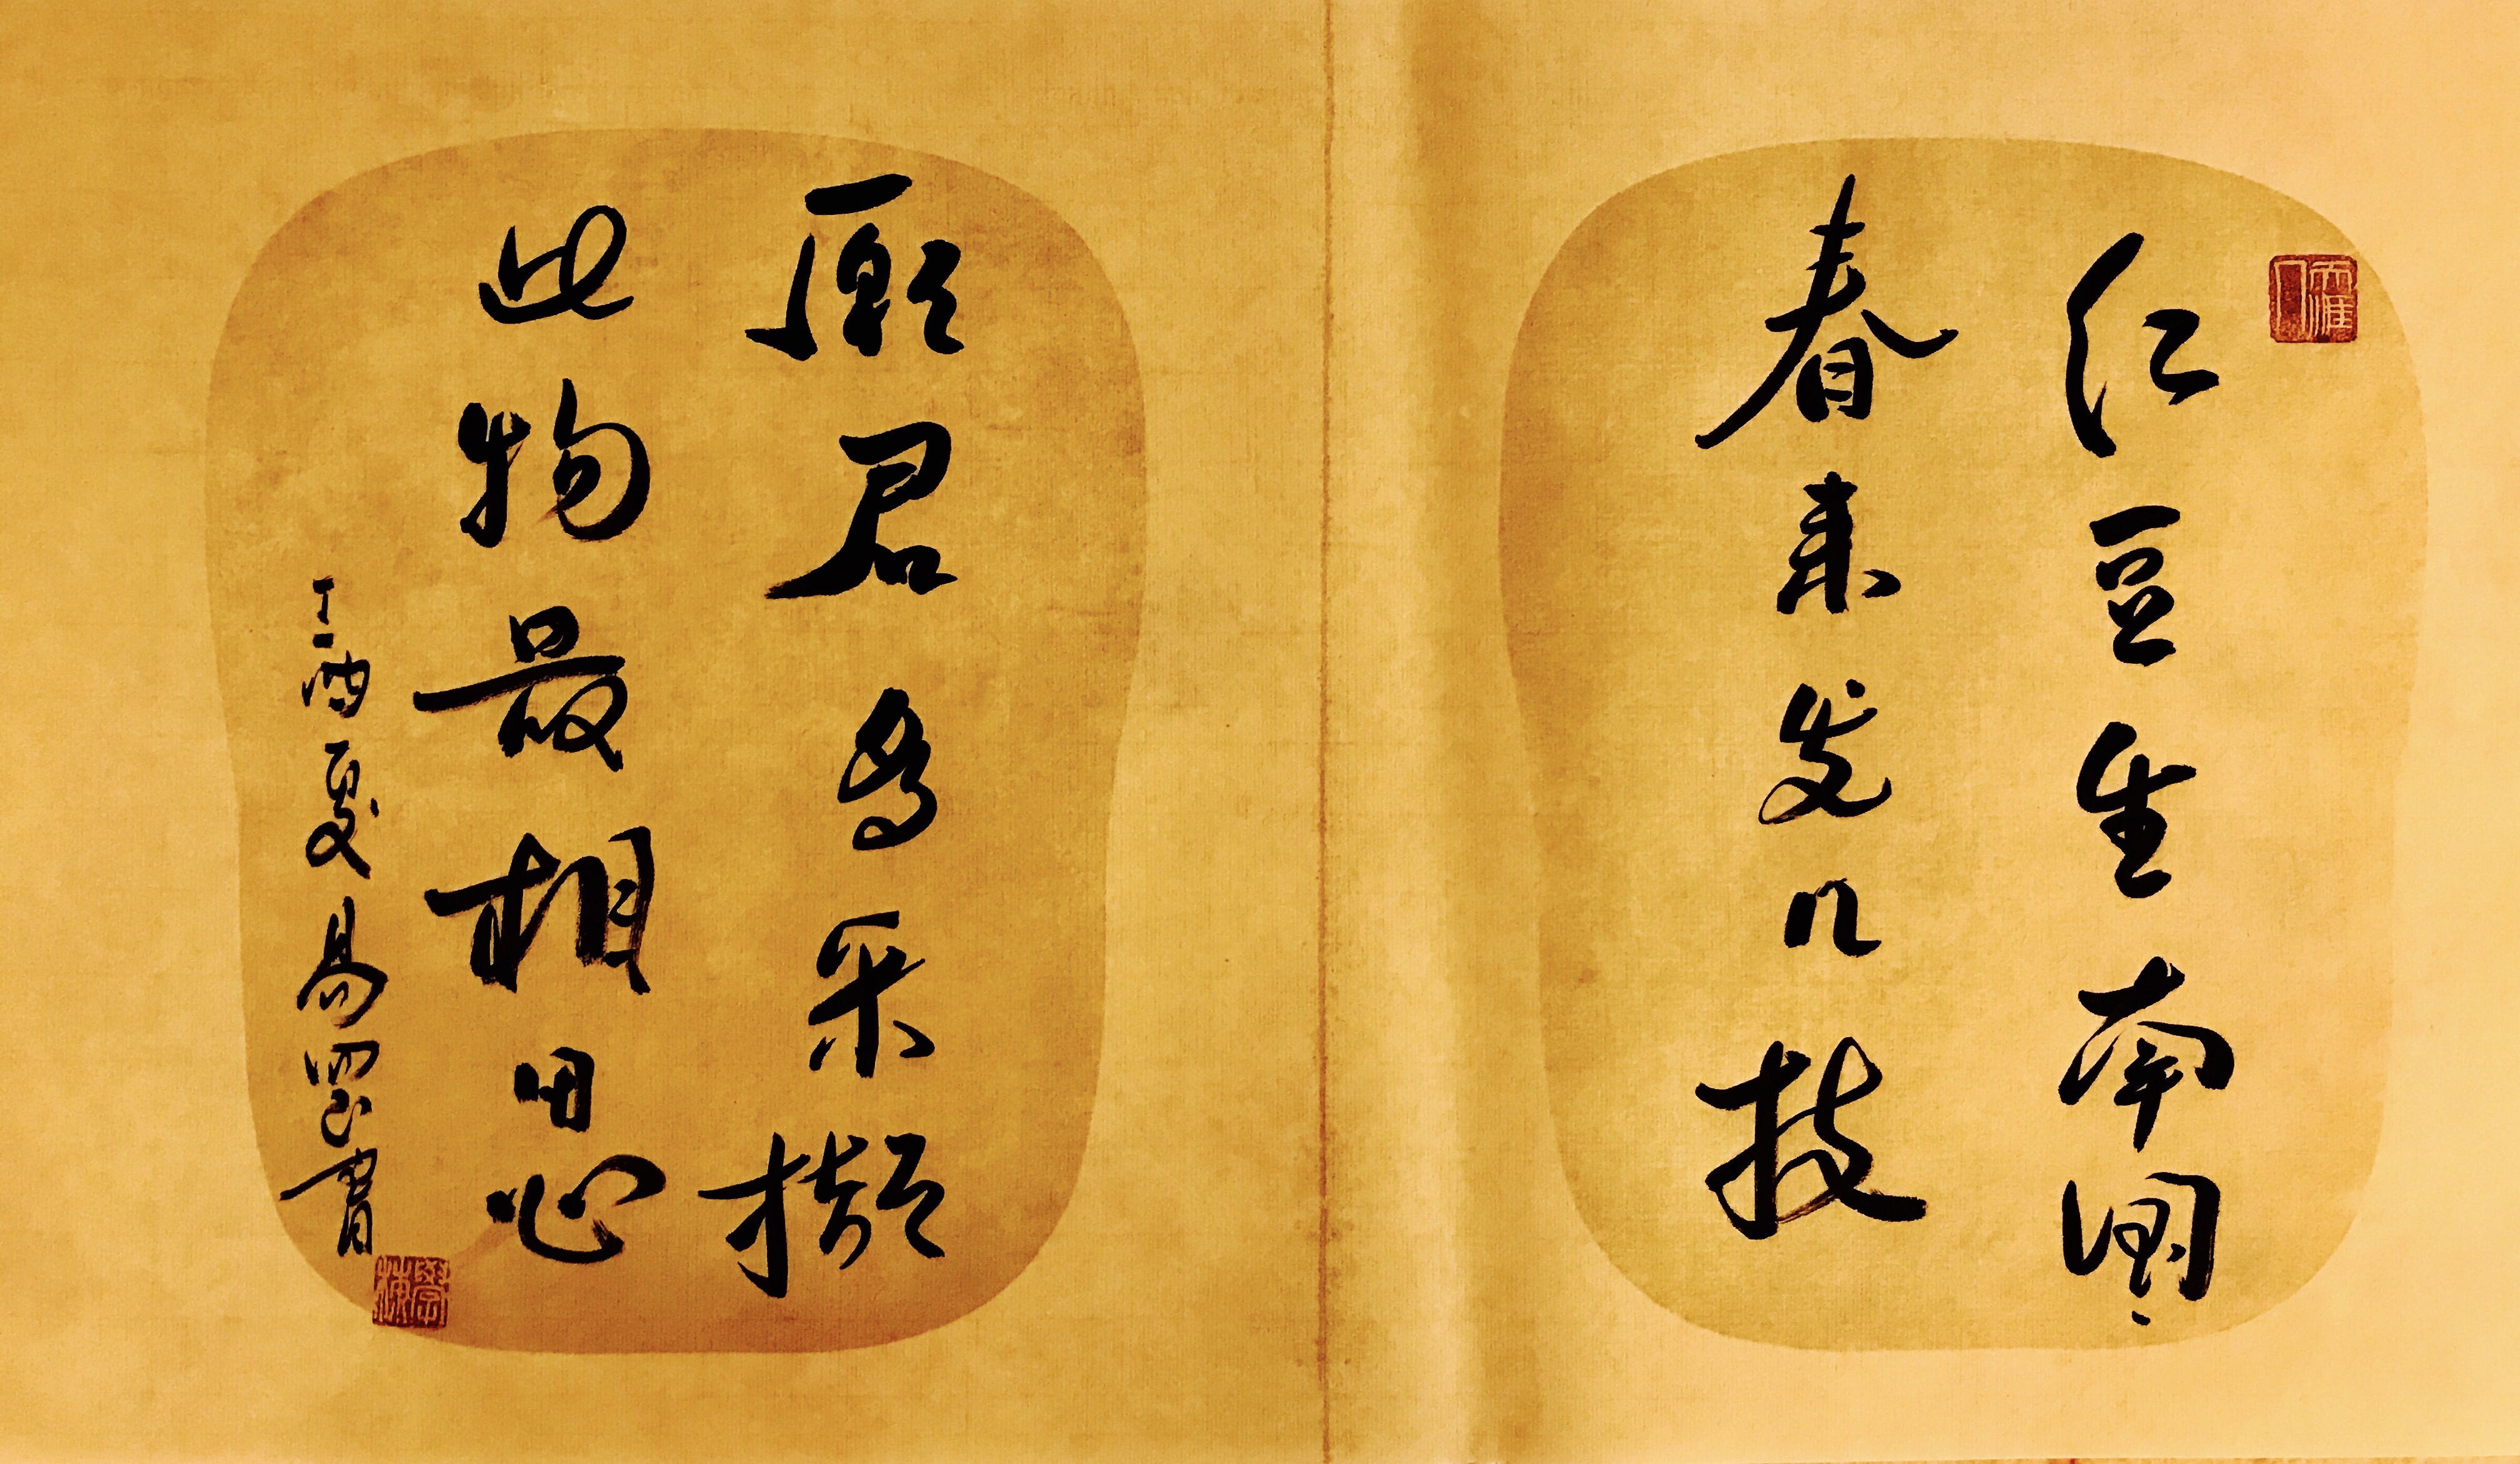 红豆生南国
春来发几枝
愿君多采撷
此物最相思
丁酉夏易